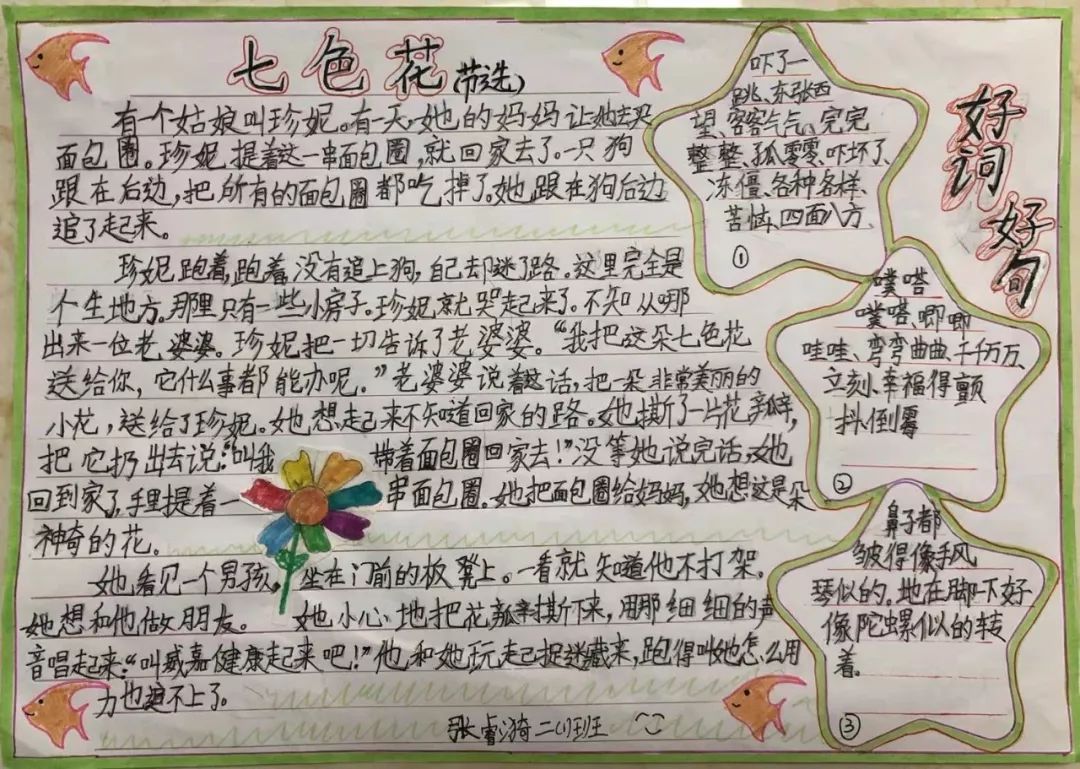 七色花(节选)
有一个姑娘叫珍妮。有一天,她的妈妈让她去买
面包圈。珍妮,提着这一串面包圈,就回家去了。一只狗
跟在后边,把所有的面包圈都吃掉了。她跟在狗后边
追了起来。
珍妮跑着,跑着,没有追上狗,自己却迷了路。这里完全是
个生地方。那里只有一些小房子。珍妮就哭起来了。不知从哪
出来一位老婆婆。珍妮把一切告诉了老婆婆。“我把这朵七色花
送给你,它什么事都能办呢。”老婆婆说着这话,把一朵非常美丽的
小花,送给了珍妮。她,想起来不知道回家的路。她撕了一片花瓣,
把它扔出去说:“叫我带着面包圈回家去!”没等她说完话,她
回到家了,手里提着一串面包圈。她把面包圈给妈妈,她想这是朵
神奇的花。
她,看见一个男孩,坐在门前的板凳上。一看就知道他不打架。
她想和他做朋友。她小心地把花瓣撕下来,用那细细的声
音唱起来:“叫威嘉健康起来吧!”他,和她玩起捉迷藏来,跑得叫她怎么用
力也追不上了。
张睿漪二(1)班
好词好句
吓了一
跳、东张西
望、客客气气、完完
整整、孤零零、吓坏了、
冻僵、各种各样、
苦恼、四面八方、
①
噗嗒
噗嗒、唧唧
哇哇、弯弯曲曲、千千万万、
立刻、幸福得颤
抖、倒霉
②
鼻子都
皱得像手风
琴似的。地在脚下好
像陀螺似的转
着。
③